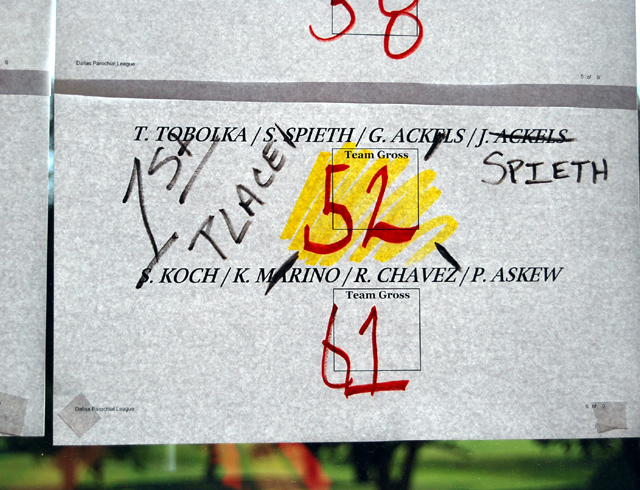 58
Dallas Parochial League
5 of 9
T. TOBOLKA / S. SPIETH / G. ACKELS / J. ACKELS
SPIETH
1ST
PLACE!
Team Gross
52
S. KOCH / K. MARINO / R. CHAVEZ / P. ASKEW
Team Gross
61
Dallas Parochial League